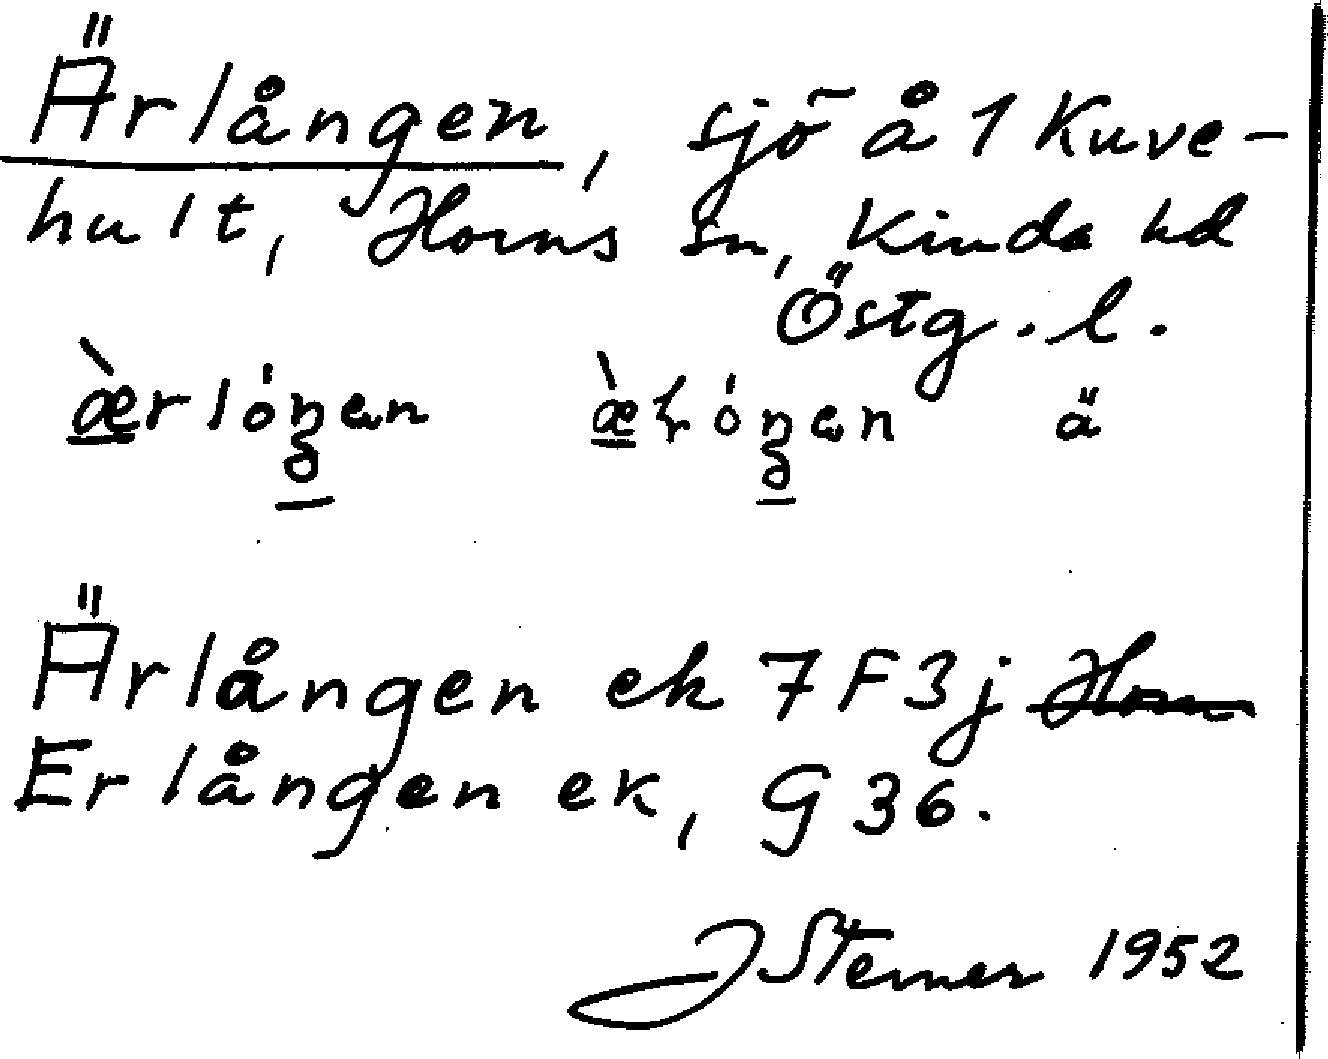 Ärlången, sjö å 1 Kuve-
hult, Horns sn, Kinda hd
Östg. l.
ä
Ärlången ek 7F3j Horn
Erlången ek, G 36.
J Sterner 1952